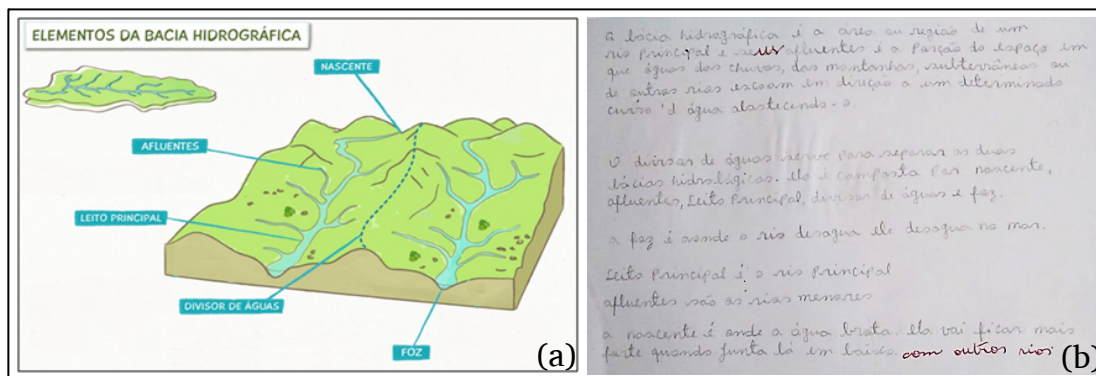 ELEMENTOS DA BACIA HIDROGRÁFICA
NASCENTE
AFLUENTES
LEITO PRINCIPAL
DIVISOR DE ÁGUAS
FOZ
(a)
A bácia hidrográfica é a área ou região de um
rio principal e seus afluentes é a porção do espaço em
que águas das chuvas, das montanhas, subterrâneas ou
de outros rios escoam em direção a um determinado
curso 'd água abastecendo-o
O divisor de águas serve para separar as duas
bácias hidrológicas. Ela é composta por nascente,
afluentes, Leito Principal, divisor de águas e foz.
a foz é aonde o rio desagua ele desagua no mar.
Leito Principal é o rio principal
afluentes são os rios menores
a nascente é onde a água brota. ela vai ficar mais
forte quando junta lá em baixo com outros rios
(b)